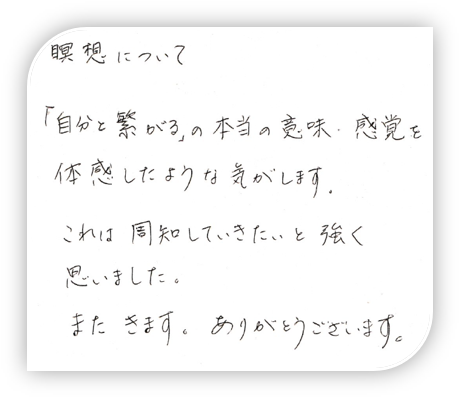 瞑想について
「自分と繋がる」の本当の意味・感覚を
体感したような気がします。
これは周知していきたいと強く
思いました。
またきます。ありがとうございます。